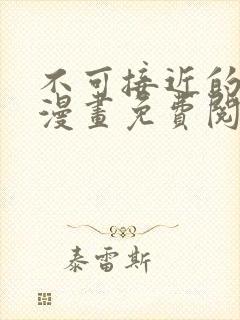 不可接近的
漫畫免費閱
泰雷斯